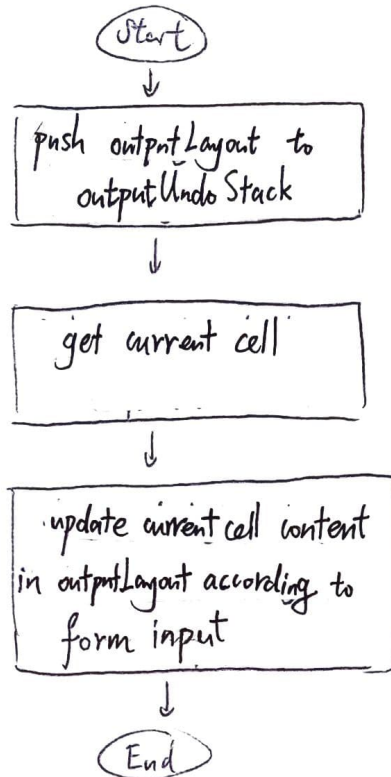 Start
push outputLayout to
outputUndoStack
get current cell
update current cell content
in outputLayout according to
form input
End